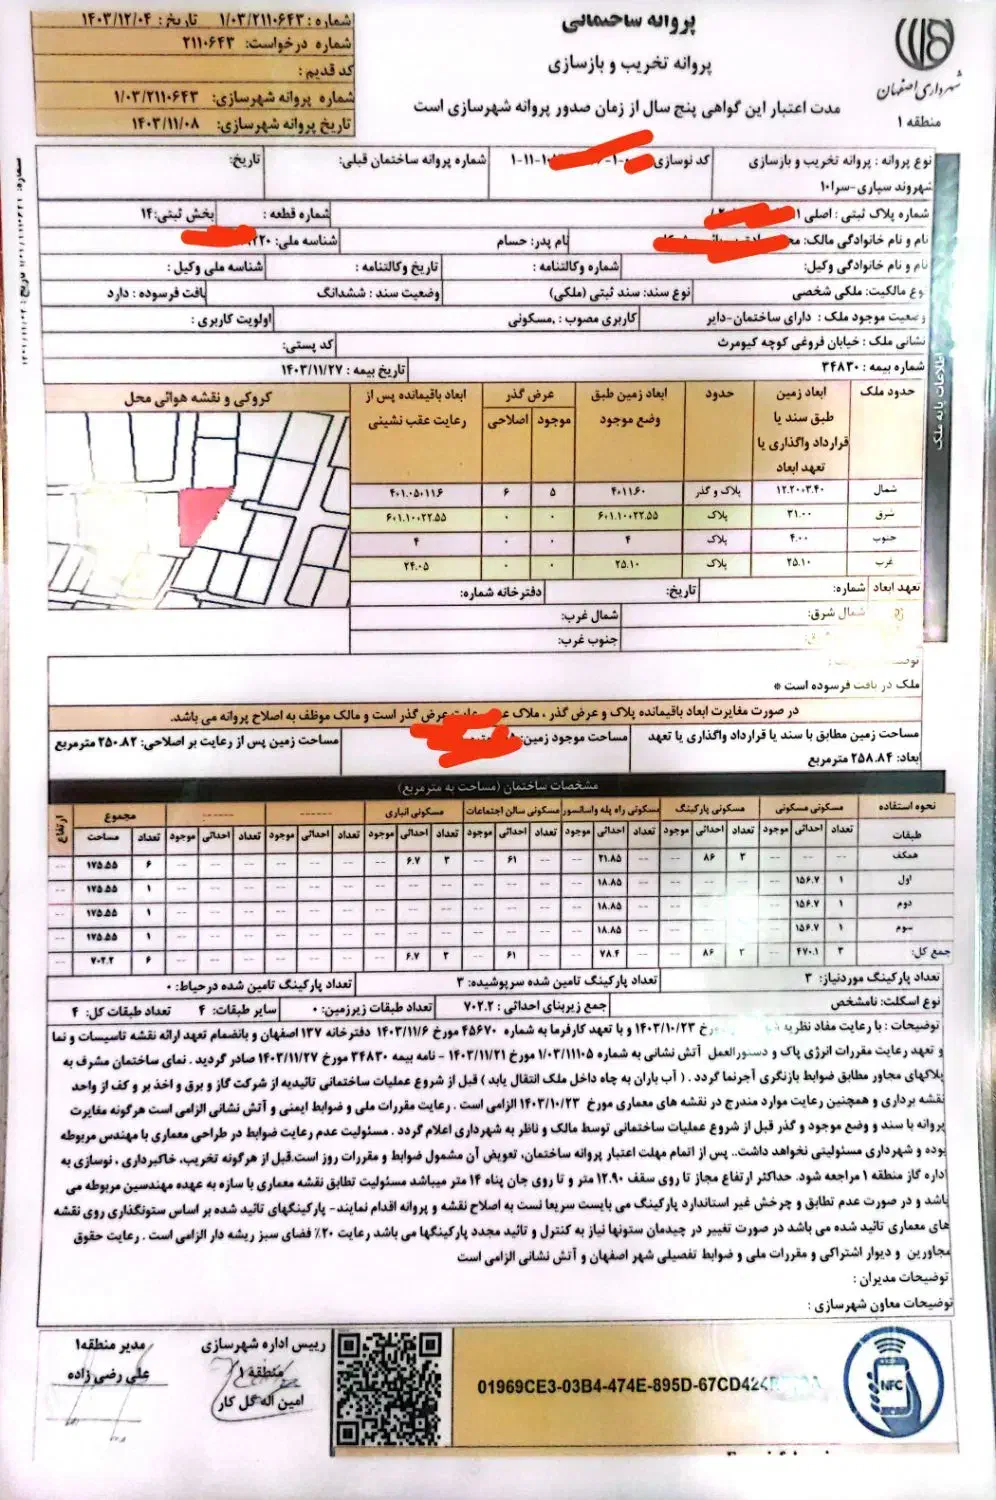 پروانه ساختمانی
پروانه تخریب و بازسازی
مدت اعتبار این گواهی پنج سال از زمان صدور پروانه شهرسازی است
شهرداری اصفهان
منطقه ۱
شماره : ۱/۰۳/۲۱۱۰۶۴۳ تاریخ : ۱۴۰۳/۱۲/۰۴
شماره درخواست: ۲۱۱۰۶۴۳
کد قدیم :
شماره پروانه شهرسازی: ۱/۰۳/۲۱۱۰۶۴۳
تاریخ پروانه شهرسازی: ۱۴۰۳/۱۱/۰۸
نوع پروانه : پروانه تخریب و بازسازی کد نوسازی شماره پروانه ساختمان قبلی: تاریخ:
شهروند سپاری-سرا۱۰
شماره پلاک ثبتی : اصلی شماره قطعه : بخش ثبتی: ۱۴
نام و نام خانوادگی مالک: نام پدر: حسام شناسه ملی:
نام و نام خانوادگی وکیل: شماره وکالتنامه : تاریخ وکالتنامه : شناسه ملی وکیل :
نوع مالکیت: ملکی شخصی نوع سند: سند ثبتی (ملکی) وضعیت سند : ششدانگ بافت فرسوده : دارد
وضعیت موجود ملک : دارای ساختمان-دایر کاربری مصوب : ,مسکونی اولویت کاربری :
نشانی ملک : خیابان فروغی کوچه کیومرث کد پستی:
شماره بیمه : ۳۴۸۳۰ تاریخ بیمه : ۱۴۰۳/۱۱/۲۷
اطلاعات پایه ملک
حدود ملک ابعاد زمین طبق سند یا قرارداد واگذاری یا تعهد ابعاد حدود ابعاد زمین طبق وضع موجود عرض گذر موجود اصلاحی ابعاد باقیمانده پس از رعایت عقب نشینی کروکی و نقشه هوائی محل
شمال ۱۲.۲۰۰۳.۴۰ پلاک و گذر ۴۰۱۱.۶۰ ۵ ۶ ۴۰۱.۰۵۰۱۱.۶
شرق ۳۱.۰۰ پلاک ۶۰۱.۱۰۰۲۲.۵۵ ۰ ۰ ۶۰۱.۱۰۰۲۲.۵۵
جنوب ۴.۰۰ پلاک ۴ ۰ ۰ ۴
غرب ۲۵.۱۰ پلاک ۲۵.۱۰ ۰ ۰ ۲۴.۰۵
تعهد ابعاد شماره: تاریخ: دفترخانه شماره:
شمال شرق: شمال غرب:
جنوب غرب:
ملک در بافت فرسوده است *
در صورت مغایرت ابعاد باقیمانده پلاک و عرض گذر ، ملاک عرض گذر است و مالک موظف به اصلاح پروانه می باشد.
مساحت زمین مطابق با سند یا قرارداد واگذاری یا تعهد ابعاد: ۲۵۸.۸۴ مترمربع مساحت موجود زمین: مساحت زمین پس از رعایت بر اصلاحی: ۲۵۰.۸۲ مترمربع
مشخصات ساختمان (مساحت به مترمربع)
نحوه استفاده مسکونی مسکونی مسکونی پارکینگ مسکونی راه پله واسانسور مسکونی سالن اجتماعات مسکونی انباری ------ ------ مجموع ارتفاع
طبقات تعداد احداثی موجود تعداد احداثی موجود تعداد احداثی موجود تعداد احداثی موجود تعداد احداثی موجود تعداد احداثی موجود تعداد احداثی موجود تعداد مساحت
همکف -- -- -- ۳ ۸۶ -- -- ۲۱.۸۵ -- -- ۶۱ -- ۳ ۶.۷ -- -- -- -- -- -- -- ۶ ۱۷۵.۵۵ --
اول ۱ ۱۵۶.۷ -- -- -- -- -- ۱۸.۸۵ -- -- -- -- -- -- -- -- -- -- -- -- -- ۱ ۱۷۵.۵۵ --
دوم ۱ ۱۵۶.۷ -- -- -- -- -- ۱۸.۸۵ -- -- -- -- -- -- -- -- -- -- -- -- -- ۱ ۱۷۵.۵۵ --
سوم ۱ ۱۵۶.۷ -- -- -- -- -- ۱۸.۸۵ -- -- -- -- -- -- -- -- -- -- -- -- -- ۱ ۱۷۵.۵۵ --
جمع کل: ۳ ۴۷۰.۱ -- ۳ ۸۶ -- -- ۷۸.۴ -- -- ۶۱ -- ۳ ۶.۷ -- -- -- -- -- -- -- ۶ ۷۰۲.۲ --
تعداد پارکینگ موردنیاز: ۳ تعداد پارکینگ تامین شده سرپوشیده: ۳ تعداد پارکینگ تامین شده درحیاط: ۰
نوع اسکلت: نامشخص جمع زیربنای احداثی : ۷۰۲.۲ تعداد طبقات زیرزمین: ۰ سایر طبقات: ۴ تعداد طبقات کل: ۴
توضیحات : با رعایت مفاد نظریه مورخ ۱۴۰۳/۱۰/۲۳ و با تعهد کارفرما به شماره ۴۵۶۷۰ مورخ ۱۴۰۳/۱۱/۶ دفترخانه ۱۳۷ اصفهان و بانضمام تعهد ارائه نقشه تاسیسات و نما
و تعهد رعایت مقررات انرژی پاک و دستورالعمل آتش نشانی به شماره ۱/۰۳/۱۱۱۰۵ مورخ ۱۴۰۳/۱۱/۲۱ - نامه بیمه ۳۴۸۳۰ مورخ ۱۴۰۳/۱۱/۲۷ صادر گردید . نمای ساختمان مشرف به
پلاکهای مجاور مطابق ضوابط بازنگری آجرنما گردد . ( آب باران به چاه داخل ملک انتقال یابد ) قبل از شروع عملیات ساختمانی تائیدیه از شرکت گاز و برق و اخذ بر و کف از واحد
نقشه برداری و همچنین رعایت موارد مندرج در نقشه های معماری مورخ ۱۴۰۳/۱۰/۲۳ الزامی است . رعایت مقررات ملی و ضوابط ایمنی و آتش نشانی الزامی است هرگونه مغایرت
پروانه با سند و وضع موجود و گذر قبل از شروع عملیات ساختمانی توسط مالک و ناظر به شهرداری اعلام گردد . مسئولیت عدم رعایت ضوابط در طراحی معماری با مهندس مربوطه
بوده و شهرداری مسئولیتی نخواهد داشت.. پس از اتمام مهلت اعتبار پروانه ساختمان، تعویض آن مشمول ضوابط و مقررات روز است.قبل از هرگونه تخریب، خاکبرداری ، نوسازی به
اداره گاز منطقه ۱ مراجعه شود. حداکثر ارتفاع مجاز تا روی سقف ۱۲.۹۰ متر و تا روی جان پناه ۱۴ متر میباشد مسئولیت تطابق نقشه معماری با سازه به عهده مهندسین مربوطه می
باشد و در صورت عدم تطابق و چرخش غیر استاندارد پارکینگ می بایست سریعا نست به اصلاح نقشه و پروانه اقدام نمایند- پارکینگهای تائید شده بر اساس ستونگذاری روی نقشه
های معماری تائید شده می باشد در صورت تغییر در چیدمان ستونها نیاز به کنترل و تائید مجدد پارکینگها می باشد رعایت ۲۰٪ فضای سبز ریشه دار الزامی است . رعایت حقوق
مجاورین و دیوار اشتراکی و مقررات ملی و ضوابط تفصیلی شهر اصفهان و آتش نشانی الزامی است
توضیحات مدیران :
توضیحات معاون شهرسازی :
مدیر منطقه۱
علی رضی زاده
رییس اداره شهرسازی
منطقه ۱
امین اله گل کار
01969CE3-03B4-474E-895D-67CD424
NFC